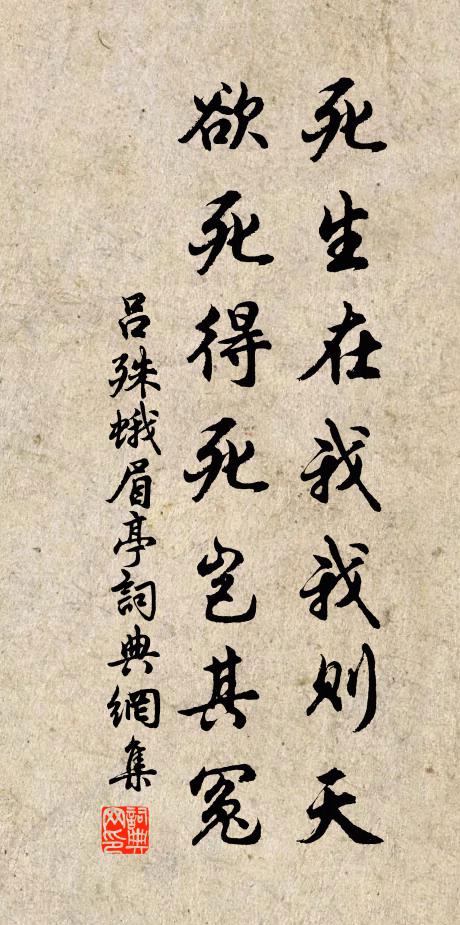 死生在我我则天
欲死得死岂其冤
吕殊蛾眉亭詞典網集
詞典网印